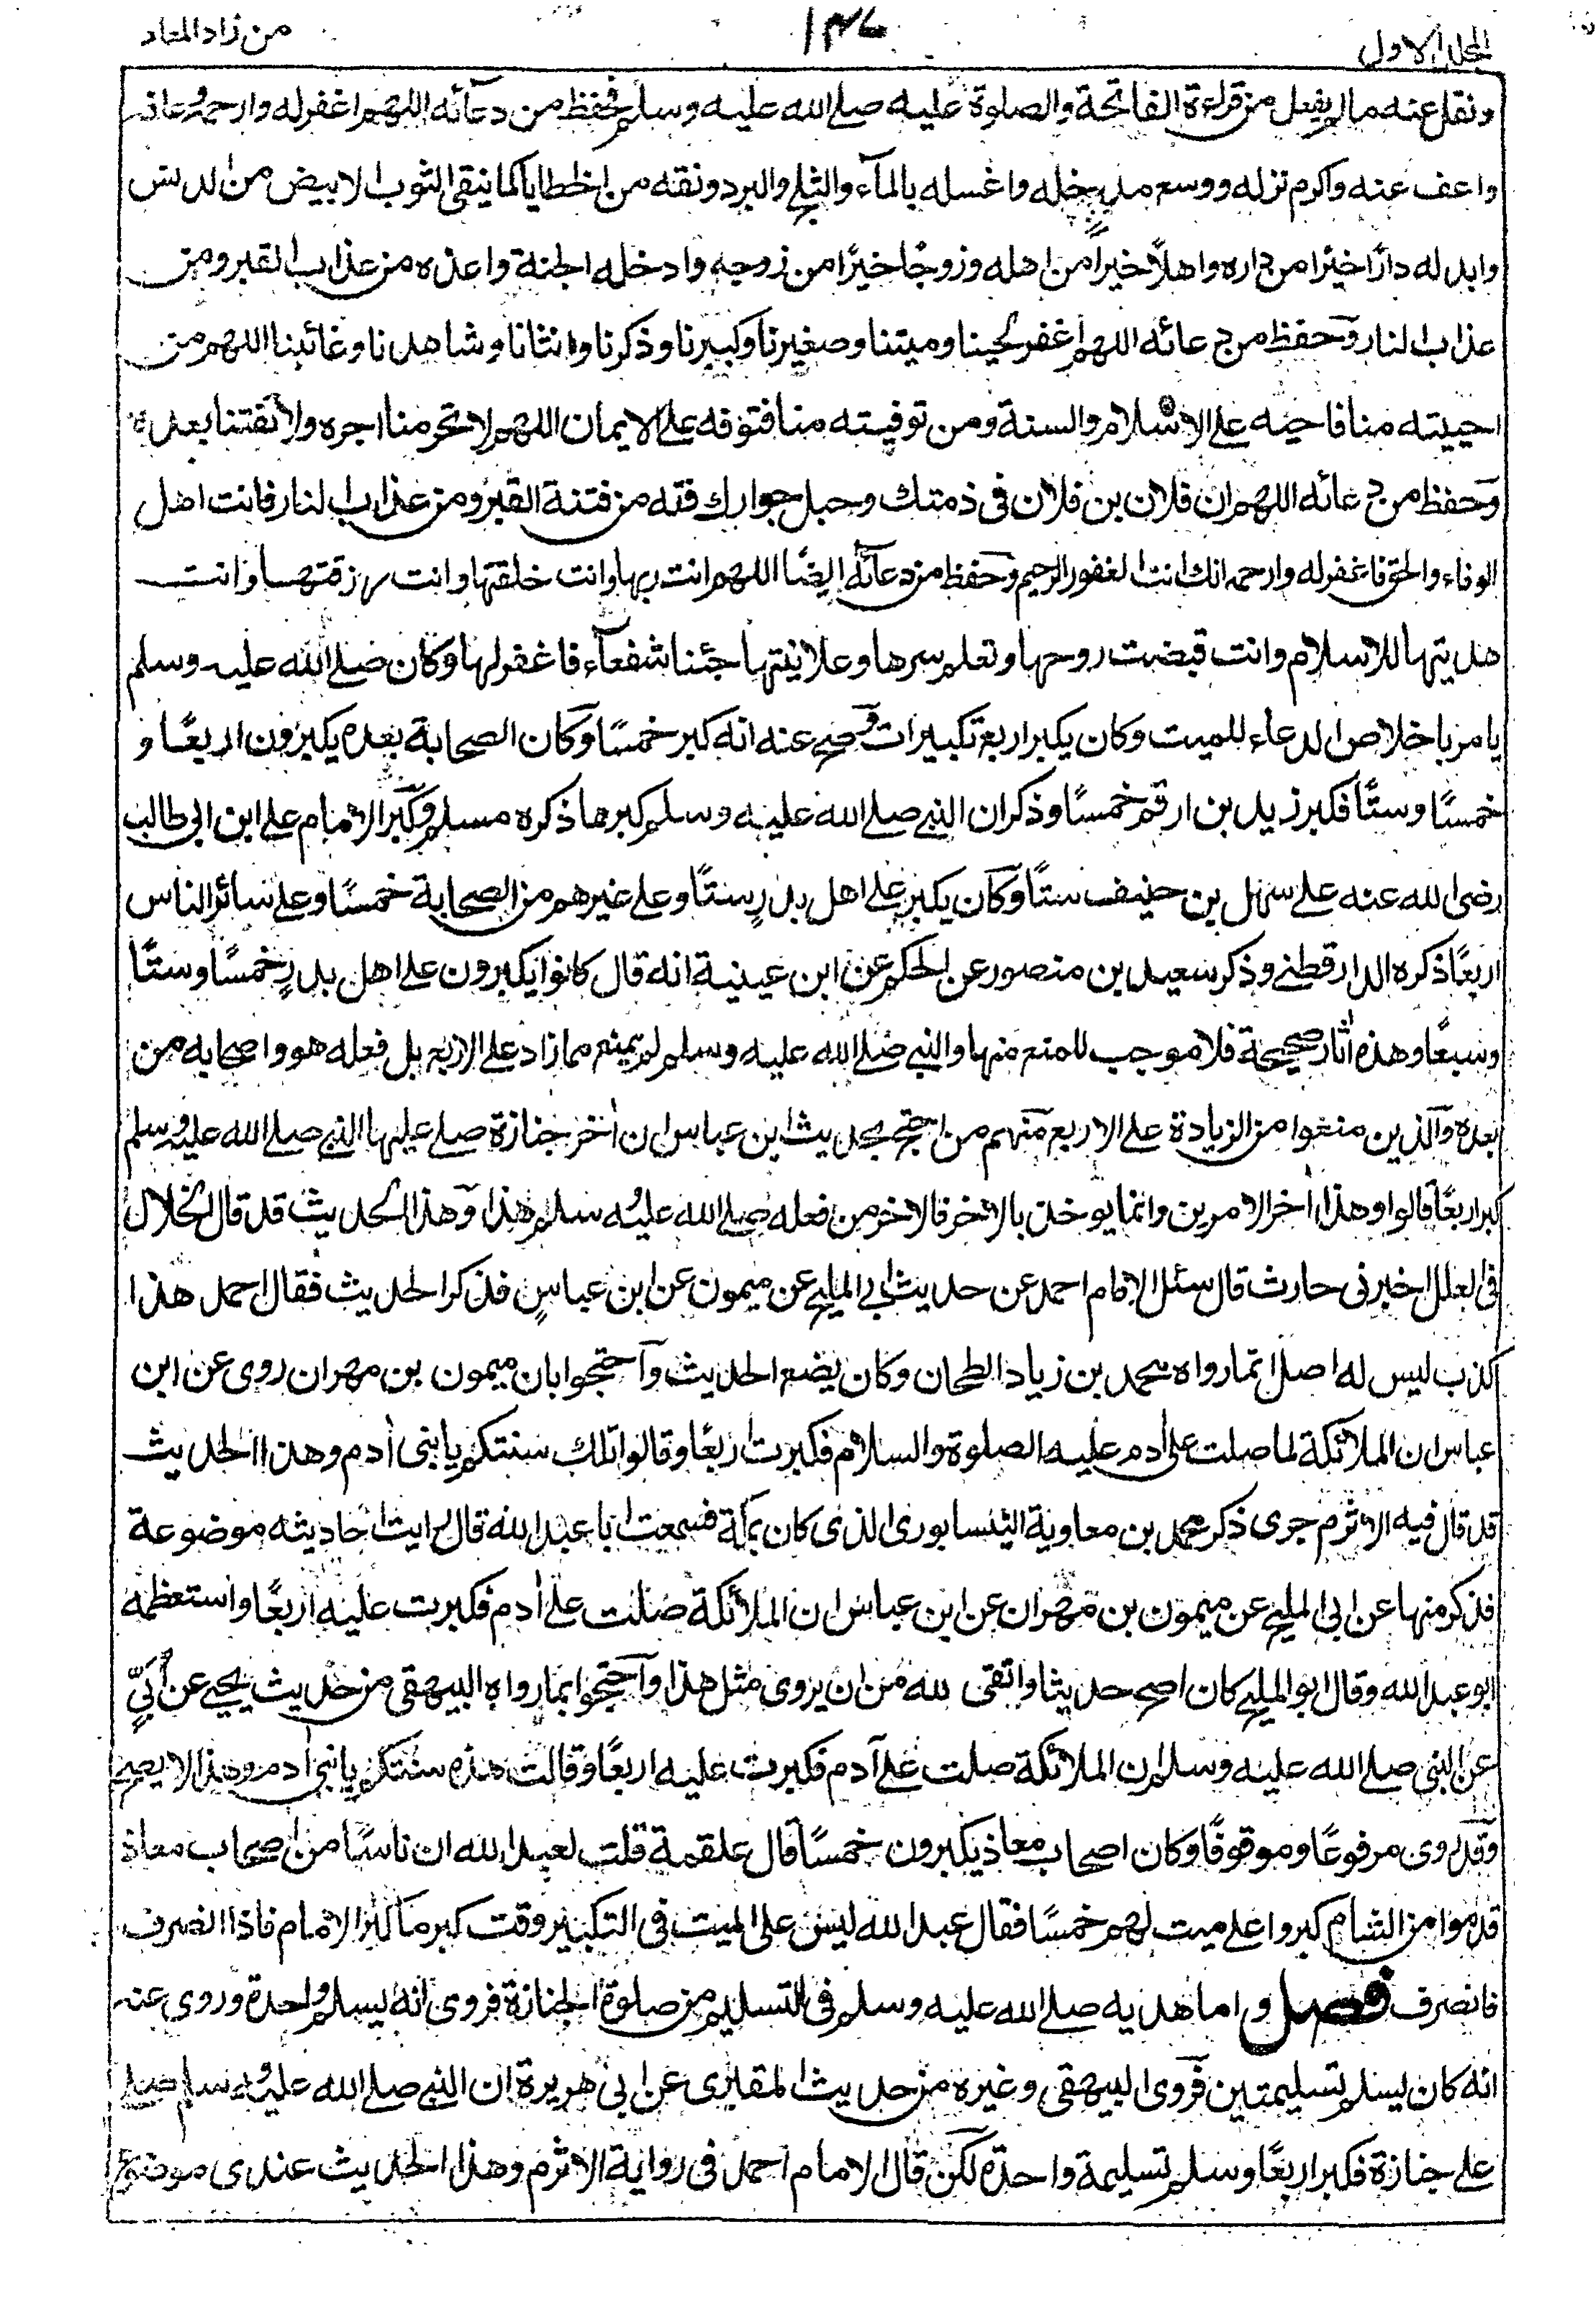 المجلد الاول
١٣٧
من زاد المعاد
ونقل عنه مالم يفعل من قراءة الفاتحة والصلوة عليه صلے الله عليه وسلم وحفظ من دعائه اللهم اغفر له وارحمه وعافه
واعف عنه واكرم نزله ووسع مدخله واغسله بالمآء والثلج والبرد ونقه من الخطايا كما ينقى الثوب الابيض من الدنس
وابدله دارًا خيرًا من داره واهلًا خيراً من اهله وزوجًا خيرًا من زوجه وادخله الجنة واعذه من عذاب القبر ومن
عذاب النار وحفظ من دعائه اللهم اغفر لحينا وميتنا وصغيرنا وكبيرنا وذكرنا وانثانا وشاهدنا وغائبنا اللهم من
احييته منا فاحيه علے الاسلام والسنة ومن توفيته منا فتوفه علے الايمان اللهم لا تحرمنا اجره ولا تفتنا بعده
وحفظ من دعائه اللهم ان فلان بن فلان فى ذمتك وحبل جوارك فقه من فتنة القبر ومن عذاب النار فانت اهل
الوفاء والحق فاغفر له وارحمه انك انت الغفور الرحيم وحفظ من دعائه ايضًا اللهم انت ربها وانت خلقتها وانت رزقتها وانت
هديتها للاسلام وانت قبضت روحها وتعلم سرها وعلانيتها جئنا شفعآء فاغفر لها وكان صلے الله عليه وسلم
يامر باخلاص الدعاء للميت وكان يكبر اربع تكبيرات وصح عنه انه كبر خمسًا وكان الصحابة بعده يكبرون اربعًا و
خمسًا وستًا فكبر زيد بن ارقم خمسًا وذكر ان النبے صلے الله عليه وسلم كبرها ذكره مسلم وكبر الامام علے ابن ابى طالب
رضى الله عنه علے سهل بن حنيف ستًا وكان يكبر علے اهل بدرٍ ستًا وعلے غيرهم من الصحابة خمسًا وعلے سائر الناس
اربعًا ذكره الدارقطنے وذكر سعيد بن منصور عن الحكم عن ابن عيينة انه قال كانوا يكبرون علے اهل بدرٍ خمسًا وستًا
وسبعًا وهذه اٰثار صحيحة فلا موجب للمنع منها والنبے صلے الله عليه وسلم لم يمنع مما زاد علے الاربع بل فعله هو واصحابه من
بعده والذين منعوا من الزيادة علے الاربع منهم من احتج بحديث ابن عباس ان اٰخر جنازة صلے عليها النبے صلے الله عليه وسلم
كبر اربعًا قالوا وهذا اٰخر الامرين وانما يوخذ بالاٰخر فالاٰخر من فعله صلے الله عليه وسلم هذا وهذا الحديث قد قال الخلال
فى العلل اخبرنى حارث قال سئل الامام احمد عن حديث ابى المليح عن ميمون عن ابن عباسٍ فذكر الحديث فقال احمد هذا
كذب ليس له اصل انما رواه محمد بن زياد الطحان وكان يضع الحديث واحتجوا بان ميمون بن مهران روى عن ابن
عباس ان الملائكة لما صلت على اٰدم عليه الصلوة والسلام فكبرت اربعًا وقالوا تلك سنتكم يا بنى اٰدم وهذا الحديث
قد قال فيه الاثرم جرى ذكر محمد بن معاوية النيسابورى الذى كان بمكة فسمعت ابا عبد الله قال رايت احاديثه موضوعة
فذكر منها عن ابى المليح عن ميمون بن مهران عن ابن عباس ان الملائكة صلت علے اٰدم فكبرت عليه اربعًا واستعظمه
ابو عبد الله وقال ابو المليح كان اصح حديثا واتقى لله من ان يروى مثل هذا واحتجوا بما رواه البيهقى من حديث يحيے عن اُبَيٍّ
عن النبى صلے الله عليه وسلم ان الملائكة صلت علے آدم فكبرت عليه اربعًا وقالت هذه سنتكم يا بنى اٰدم وهذا لا يصح
وقد روى مرفوعًا وموقوفًا وكان اصحاب معاذ يكبرون خمسًا قال علقمة قلت لعبد الله ان ناسًا من اصحاب معاذ
قدموا من الشام كبروا علے ميت لهم خمسًا فقال عبد الله ليس على الميت فى التكبير وقت كبر ما كبر الامام فاذا انصرف
فانصرف فصل واما هديه صلے الله عليه وسلم فى التسليم من صلوة الجنازة فروى انه يسلم واحدة وروى عنه
انه كان يسلم تسليمتين فروى البيهقى وغيره من حديث المقبرى عن ابى هريرة ان النبے صلے الله عليه وسلم صلے
علے جنازة فكبر اربعًا وسلم تسليمة واحدة لكن قال الامام احمد فى رواية الاثرم وهذا الحديث عندى موضوع